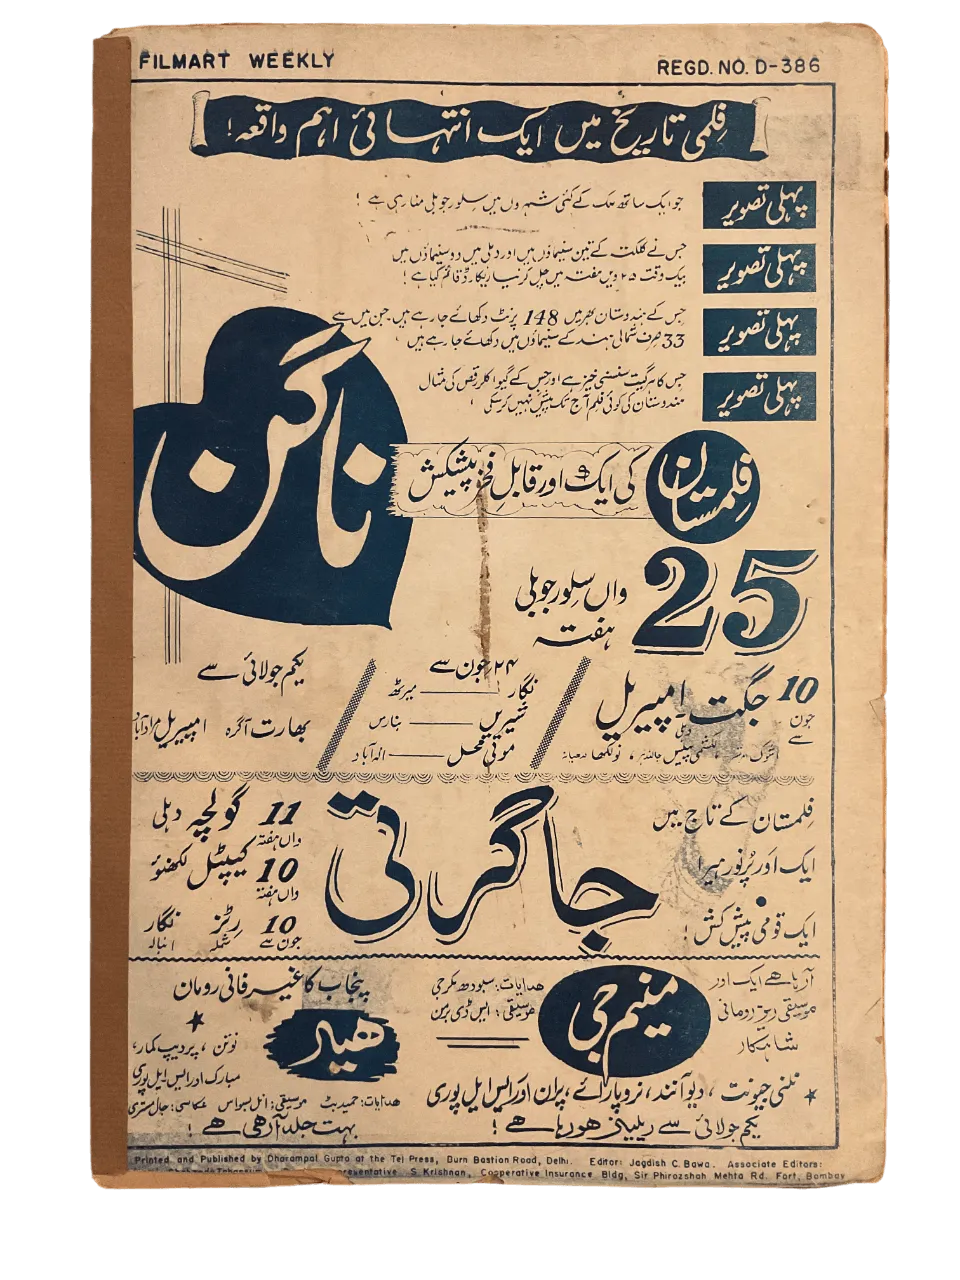 FILMART WEEKLY
REGD. NO. D-386
فلمی تاریخ میں ایک انتہائی اہم واقعہ!
پہلی تصویر
جو ایک ساتھ ملک کے کئی شہروں میں سلور جوبلی منا رہی ہے !
پہلی تصویر
جس نے کلکتہ کے تین سنیماؤں میں اور دہلی میں دو سنیماؤں میں
بیک وقت ۲۵ ویں ہفتہ میں چل کر نیا ریکارڈ قائم کیا ہے !
پہلی تصویر
جس کے ہندوستان بھر میں 148 پرنٹ دکھائے جا رہے ہیں جن میں سے
33 صرف شمالی ہند کے سنیماؤں میں دکھائے جا رہے ہیں
پہلی تصویر
جس کا ہر گیت سنسنی خیز ہے اور جس کے گیوا کلر رقص کی مثال
ہندوستان کی کوئی فلم آج تک پیش نہیں کر سکی
فلمستان
کی ایک اور قابلِ فخر پیشکش
ناگن
25
واں سلور جوبلی
ہفتہ
10
جون
سے
جگت۔ امپیریل
دہلی
لکشمی پیلس جالندھر، نولکھا لدھیانہ
۲۴ جون سے
نگار — میرٹھ
شیریں — بنارس
موتی محل — الہ آباد
یکم جولائی سے
بھارت آگرہ امپیریل مراد آباد
فلمستان کے تاج میں
ایک اور پُر نور ہیرا
ایک قومی پیش کش !
جاگرتی
11 گولچہ دہلی
واں ہفتہ
10 کیپٹل لکھنؤ
واں ہفتہ
10 رٹز نگار
جون سے شملہ انبالہ
آرہا ھے ایک اور
موسیقی ریز رومانی
شاہکار
منیم جی
ھدایات: سبودھ مکرجی
موسیقی: ایس ڈی برمن
نلنی جیونت ، دیو آنند، نروپا رائے، پران اور ایس ایل پوری
یکم جولائی سے ریلیز ھو رہا ھے !
پنجاب کا غیر فانی رومان
ھیر
نوتن ، پردیپ کمار،
مبارک اور ایس ایل پوری
ھدایات: حمید بٹ موسیقی: انل بسواس عکاسی: جال مستری
بہت جلد آرھی ھے !
Printed and Published by Dharampal Gupta at the Tej Press, Burn Bastion Road, Delhi. Editor: Jagdish C. Bawa. Associate Editors:
S. Krishnan, Cooperative Insurance Bldg, Sir Phirozshah Mehta Rd. Fort, Bombay